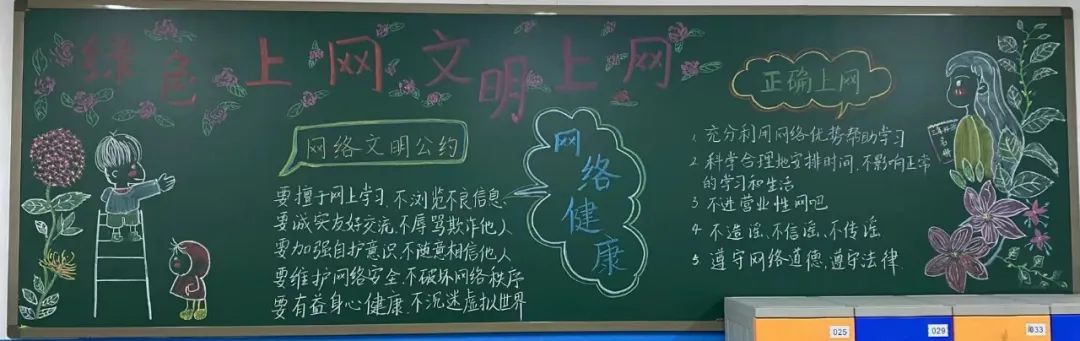 绿色上网 文明上网
网络文明公约
要擅于网上学习,不浏览不良信息、
要诚实友好交流,不辱骂欺诈他人
要加强自护意识,不随意相信他人
要维护网络安全,不破坏网络秩序
要有益身心健康,不沉迷虚拟世界
网络健康
正确上网
1. 充分利用网络优势帮助学习
2. 科学合理地安排时间,不影响正常
的学习和生活
3. 不进营业性网吧
4. 不造谣、不信谣、不传谣
5. 遵守网络道德,遵守法律.
025
029
033